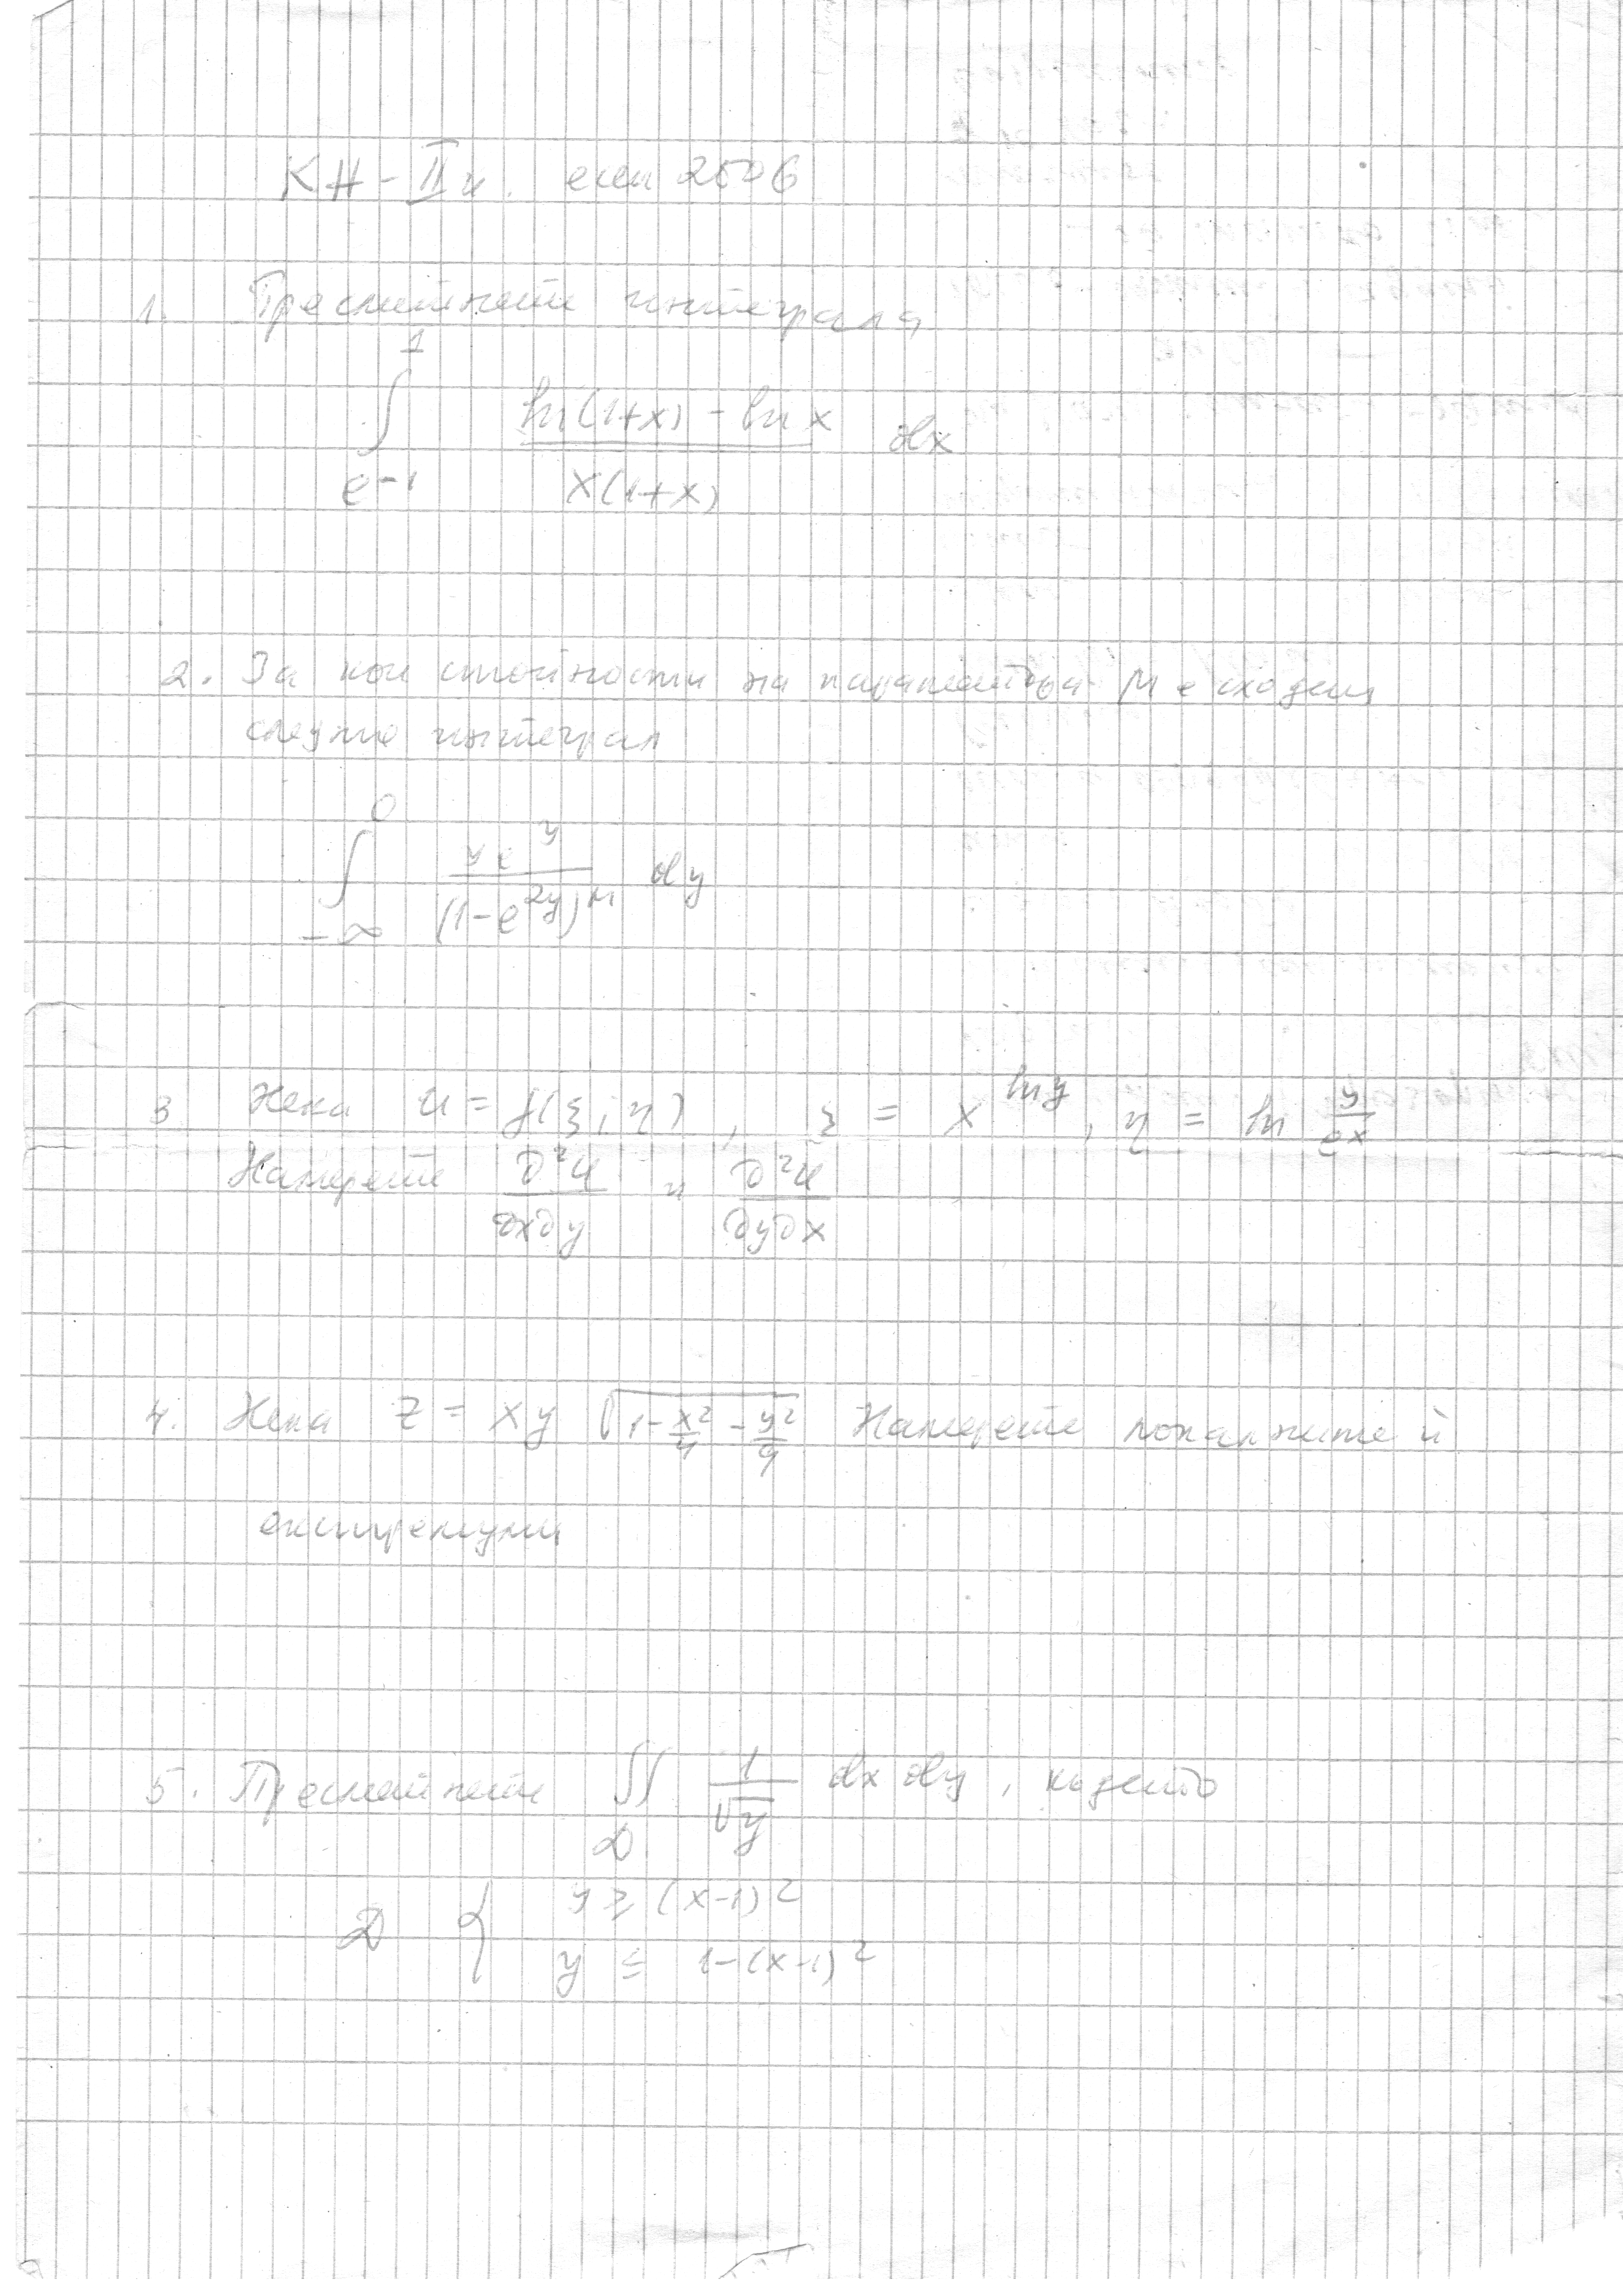 КН - II к. есен 2006
1. Пресметнете интеграла
∫_{e^{-1}}^{1} (ln(1+x) - ln x)/(x(1+x)) dx
2. За кои стойности на параметъра M е сходящ
следния интеграл
∫_{-∞}^{0} (y e^y)/((1-e^{2y})^M) dy
3 Нека u = f(ξ; η), ξ = x^{ln y}, η = ln y/(ex)
Намерете ∂²u/∂x∂y и ∂²u/∂y∂x
4. Нека z = xy √(1 - x²/4 - y²/9) Намерете локалните й
екстремуми
5. Пресметнете ∬_D 1/√y dx dy, където
D { y ≥ (x-1)²
y ≤ 1-(x-1)²